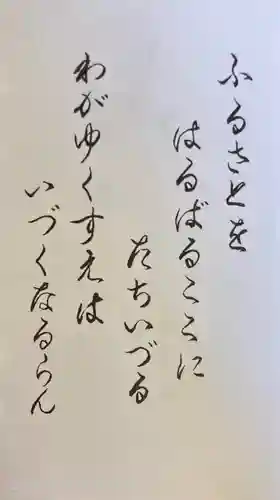 ふるさとを
はるばるここに
たちいづる
わがゆくすえは
いづくなるらん